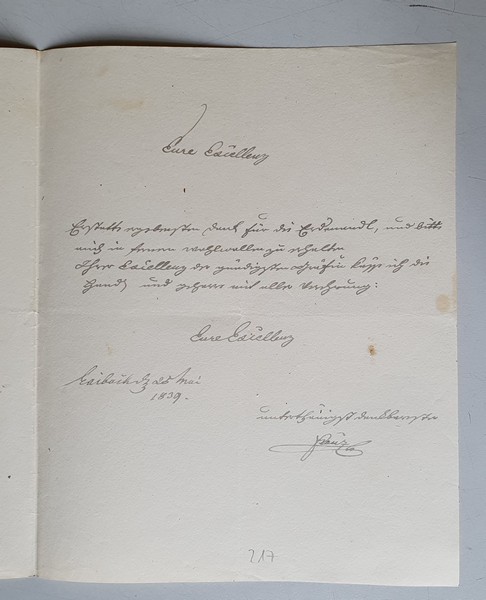 Eure Excellenz
Erstatte ergebensten Dank für die Erdmandl, und bitte
mich in ferner wohlwollen zu erhalten
Ihrer Excellenz der gnädigsten Gräfin küsse ich die
Hand, und geharre mit aller Verehrung:
Eure Excellenz
Laibach d 25 Mai
1839.
unterthänigst dankbarster
217